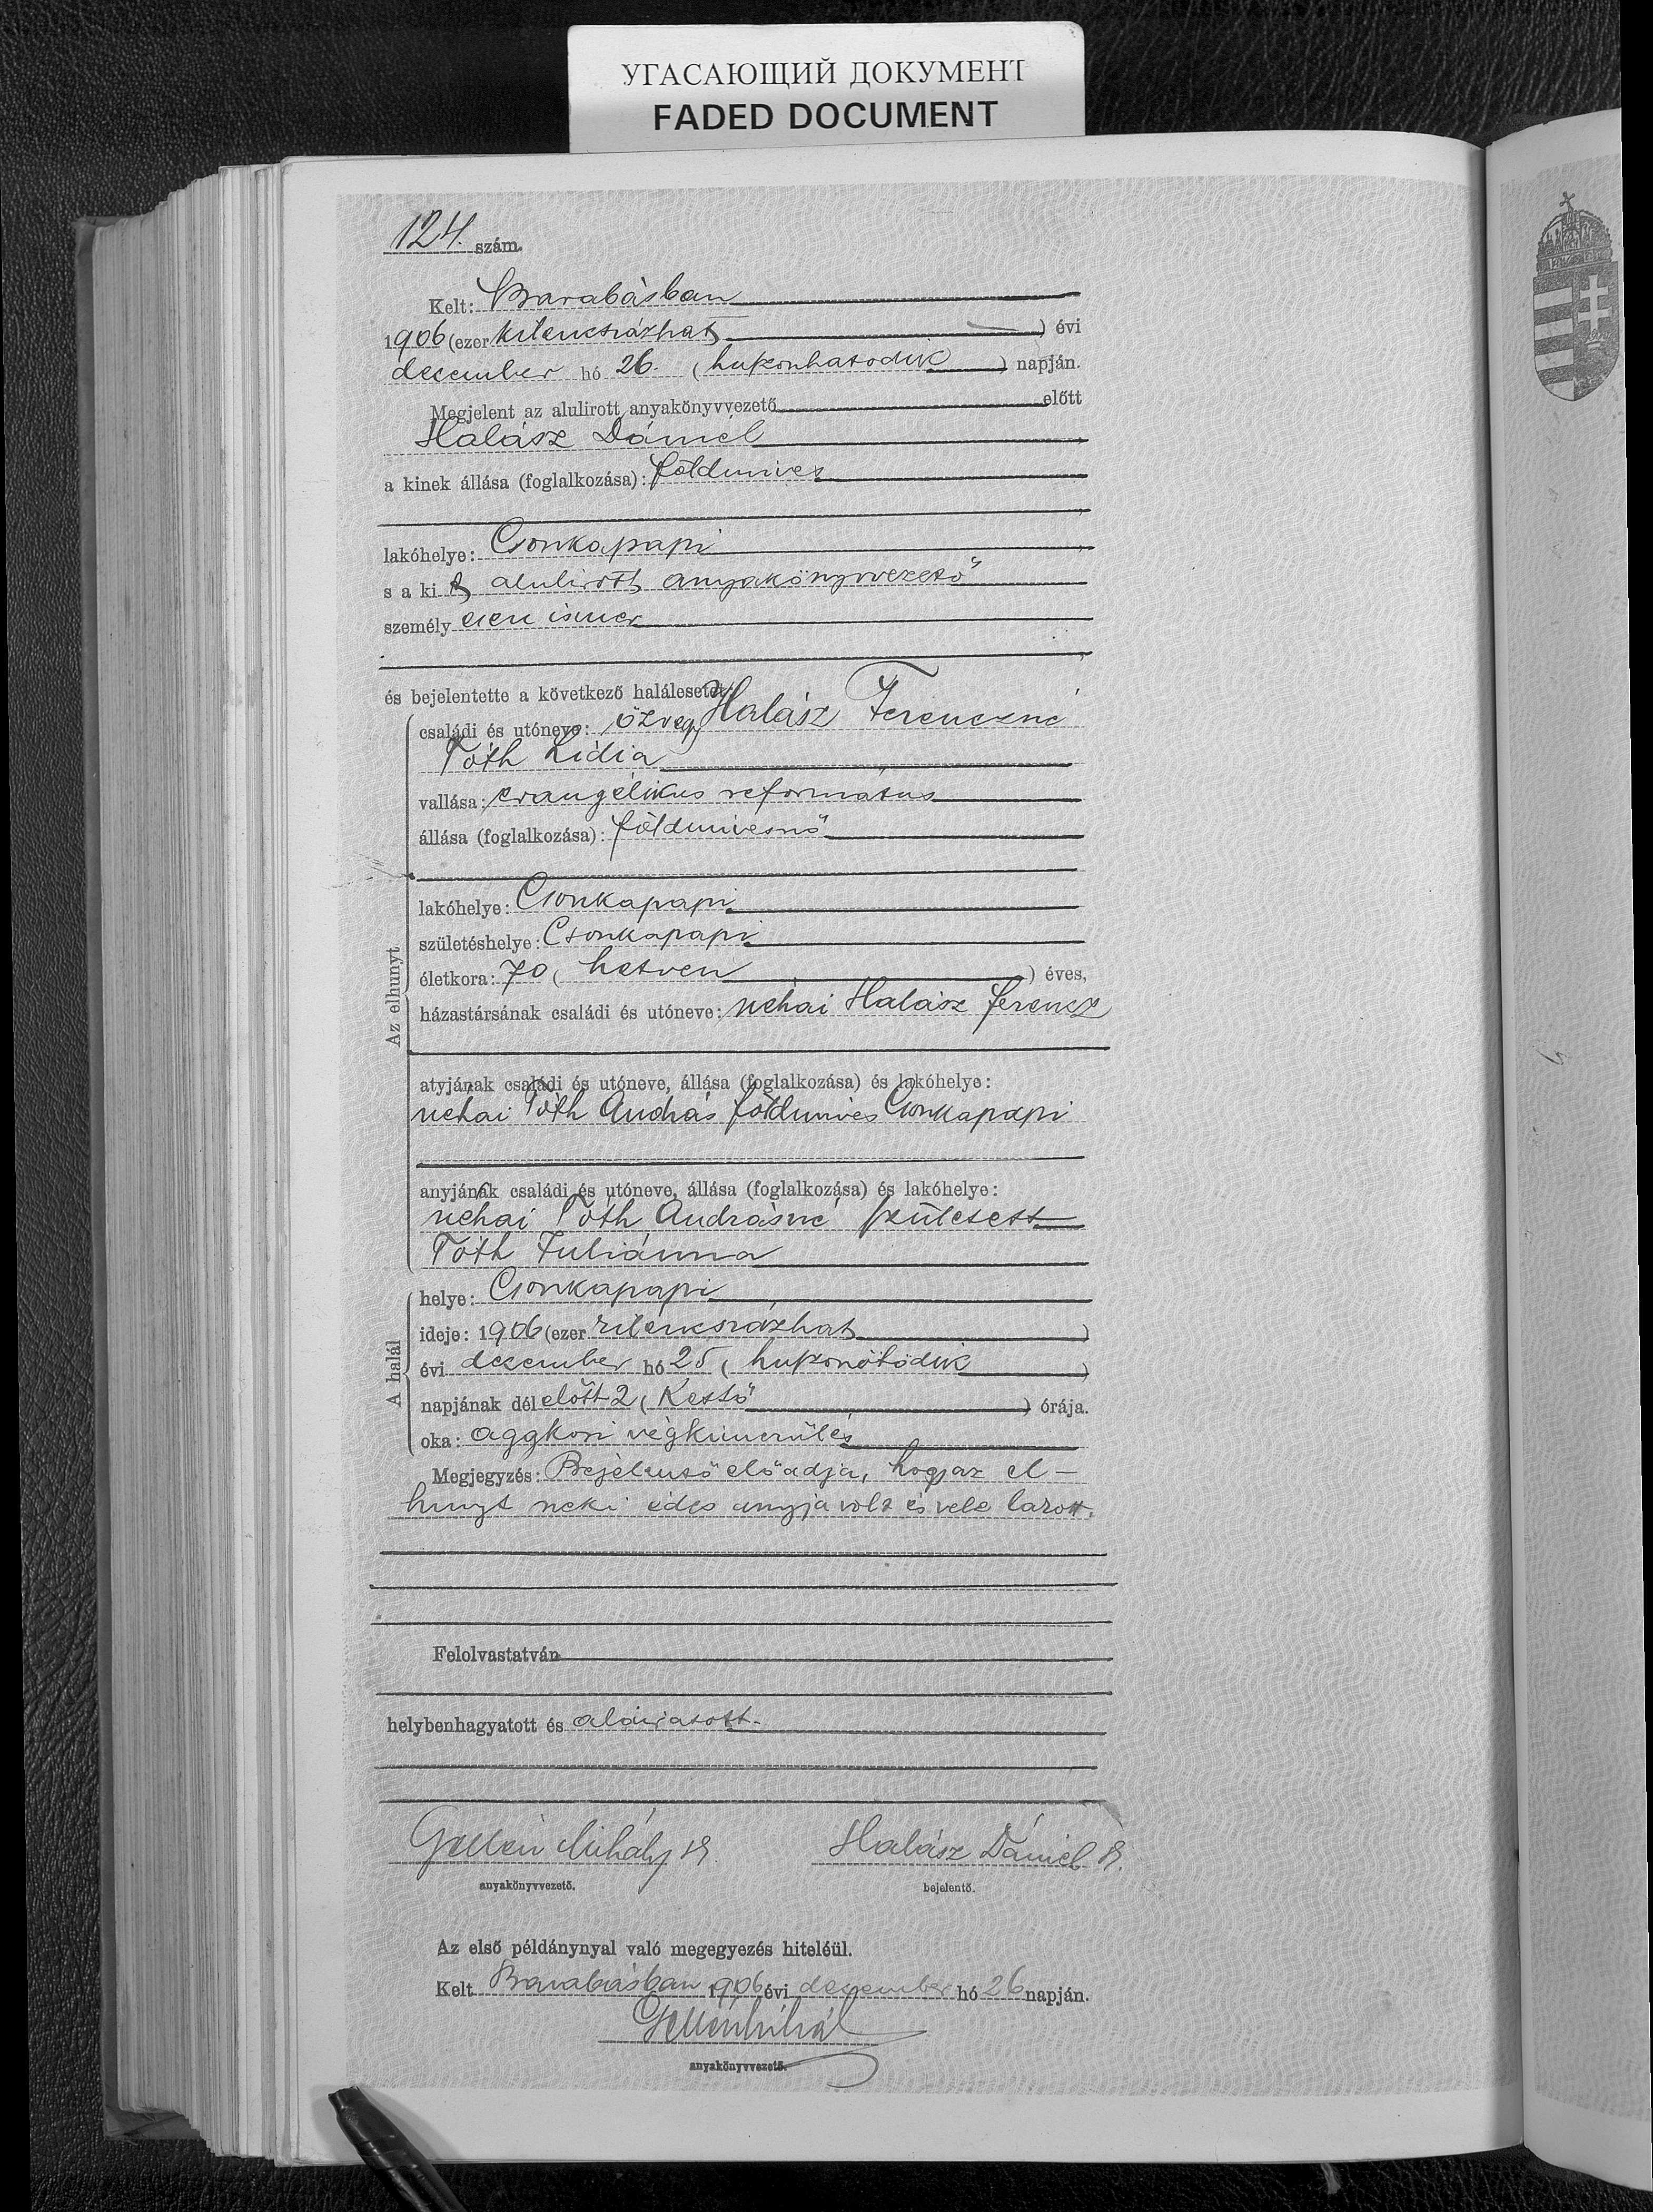 УГАСАЮЩИЙ ДОКУМЕНТ
FADED DOCUMENT
124. szám.
Kelt: Barabásban
1906 (ezer kilencszázhat) évi
december hó 26. (huszonhatodik) napján.
Megjelent az alulirott anyakönyvvezető előtt
Halász Dániel
a kinek állása (foglalkozása): földmives
lakóhelye: Csonkapapi
s a kit alulirott anyakönyvvezető
személy esen ismer
és bejelentette a következő halálesetet:
Az elhunyt
családi és utóneve: özvegy Halász Ferenczné
Tóth Lidia
vallása: evangélikus református
állása (foglalkozása): földmivesnő
lakóhelye: Csonkapapi
születéshelye: Csonkapapi
életkora: 70 (hetven) éves,
házastársának családi és utóneve: néhai Halász Ferencz
atyjának családi és utóneve, állása (foglalkozása) és lakóhelye:
néhai Tóth András földmives Csonkapapi
anyjának családi és utóneve, állása (foglalkozása) és lakóhelye:
néhai Tóth Andrásné született
Tóth Juliánna
A halál
helye: Csonkapapi
ideje: 1906 (ezer kilencszázhat)
évi december hó 25 (huszonötödik)
napjának dél előtt 2 (Kettő) órája.
oka: aggkori végkimerülés
Megjegyzés: Bejelentő előadja, hogy az el-
hunyt neki édes anyja volt és vele lakott.
Felolvastatván
helybenhagyatott és aláiratott.
Gellén Mihály sk. Halász Dániel sk.
anyakönyvvezető. bejelentő.
Az első példánynyal való megegyezés hiteléül.
Kelt Barabásban 1906 évi december hó 26 napján.
Gellén Mihály
anyakönyvvezető.